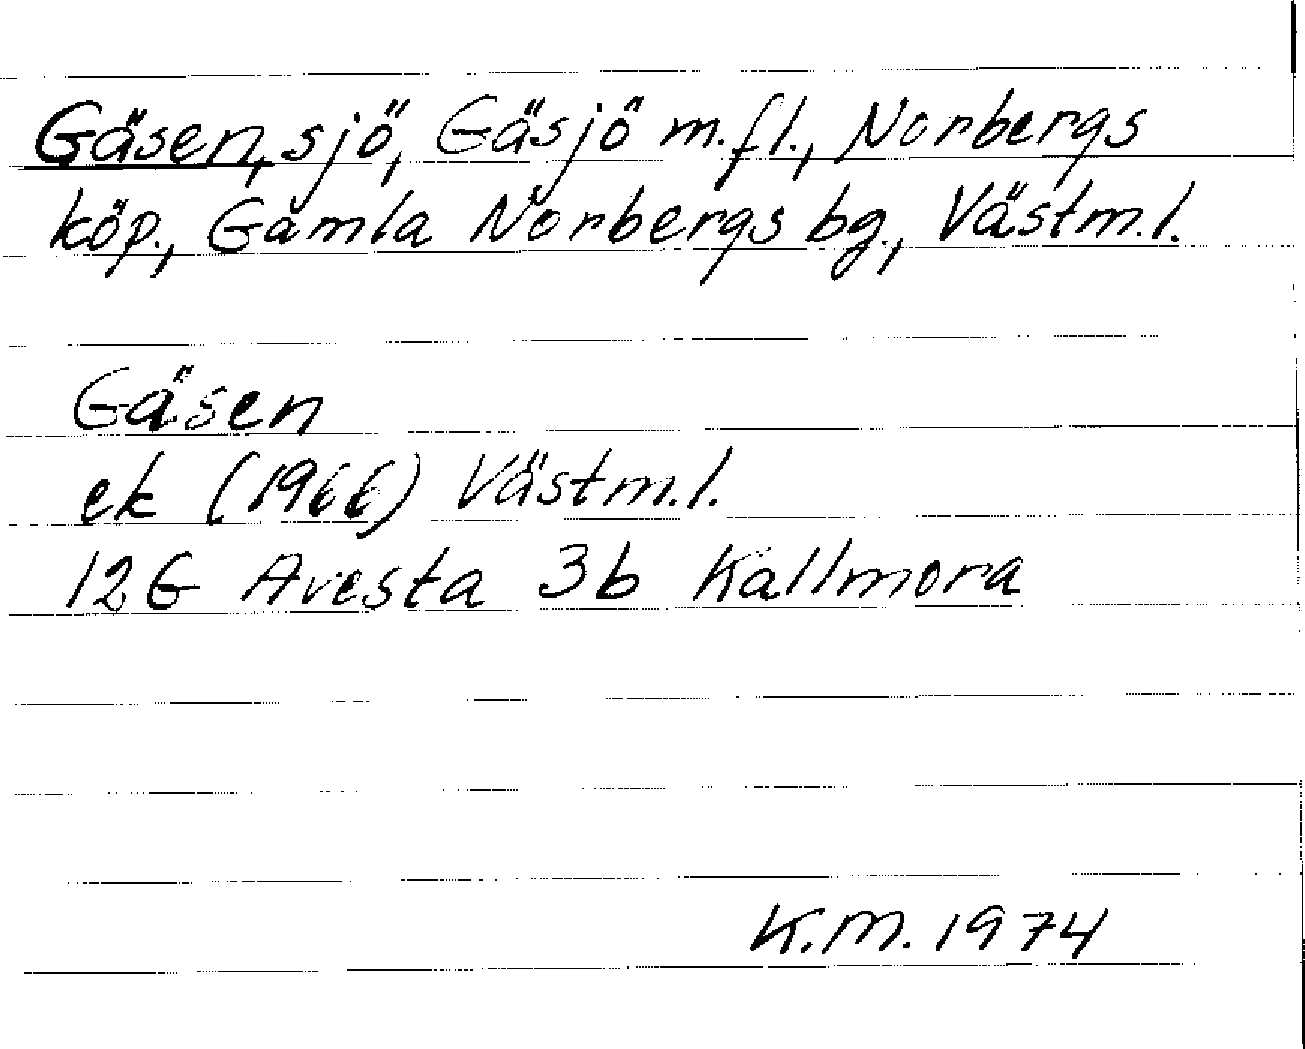 Gäsen, sjö, Gäsjö m.fl., Norbergs
köp., Gamla Norbergs bg., Västm.l.
Gäsen
ek (1966) Västm.l.
12G Avesta 3b Kallmora
K.M. 1974